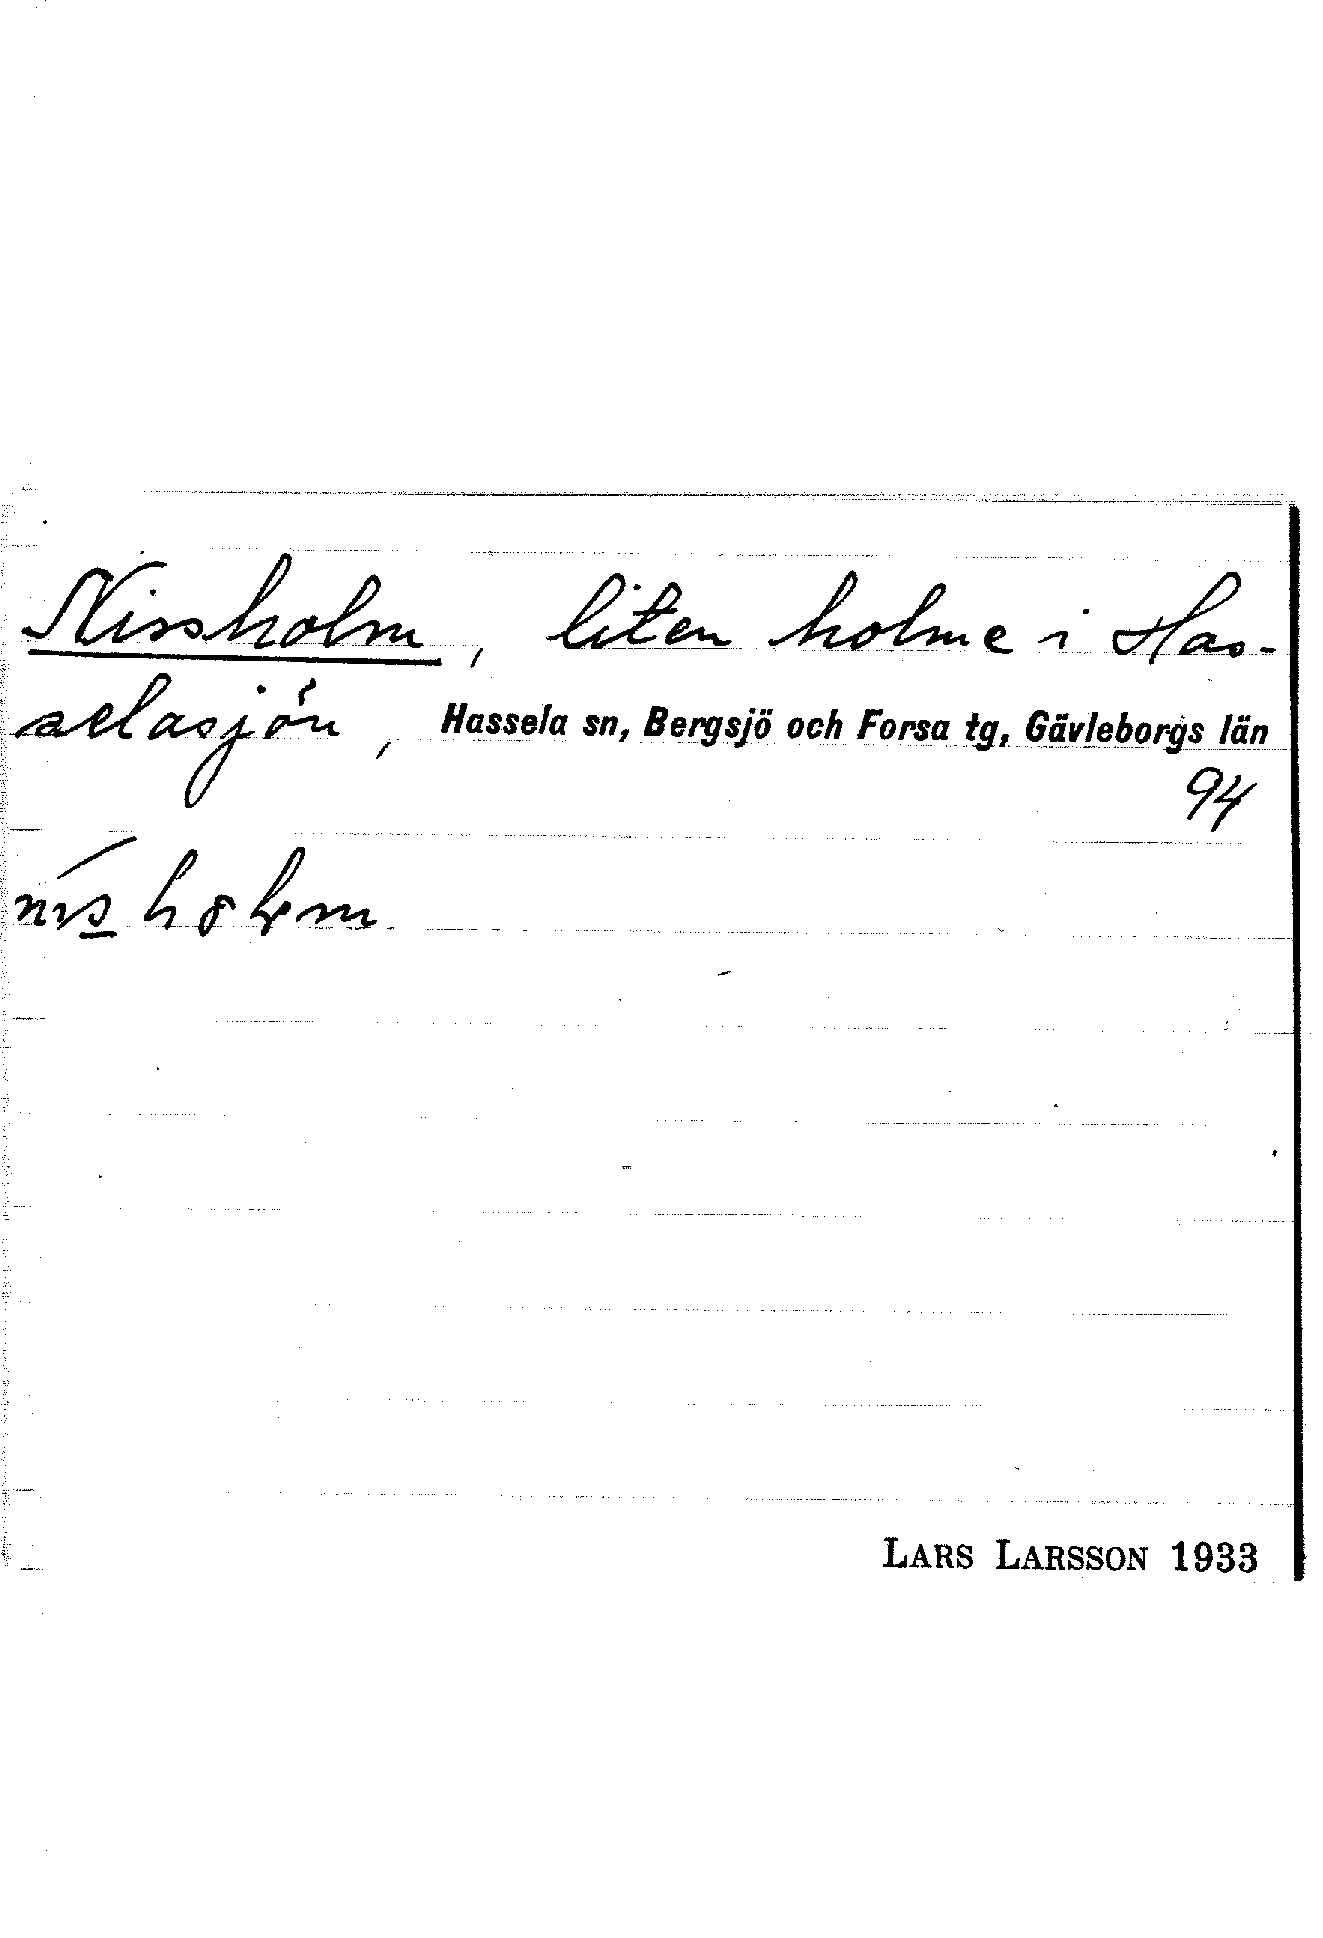 Nissholm, liten holme i Has-
selasjön, Hassela sn, Bergsjö och Forsa tg, Gävleborgs län
94
LARS LARSSON 1933